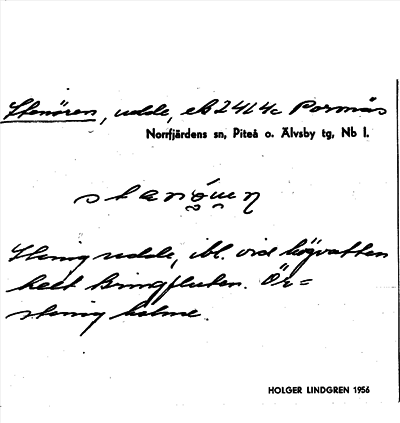 Stenören, udde, ek 24L4c Porsnäs
Norrfjärdens sn, Piteå o. Älvsby tg, Nb l.
Stenig udde, ibl. vid högvatten
helt kringfluten. Ör=
stenig holme.
HOLGER LINDGREN 1956